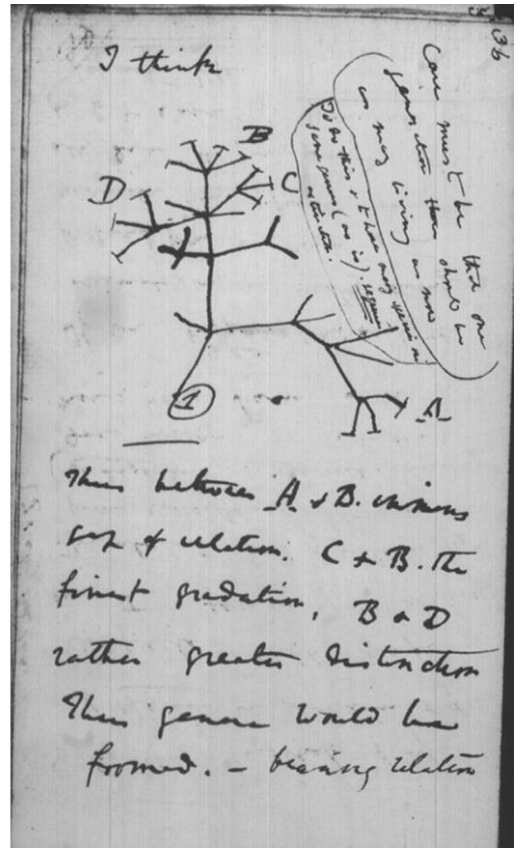 36
I think
Case must be that one
generation then should be
as many living as now
To do this & to have many species in
same genus (as is), requires
extinction.
B
D
C
1
A
Thus between A & B. immens
gap of relation. C & B. the
finest gradation, B & D
rather greater distinction
Thus genera would be
formed. — bearing relation